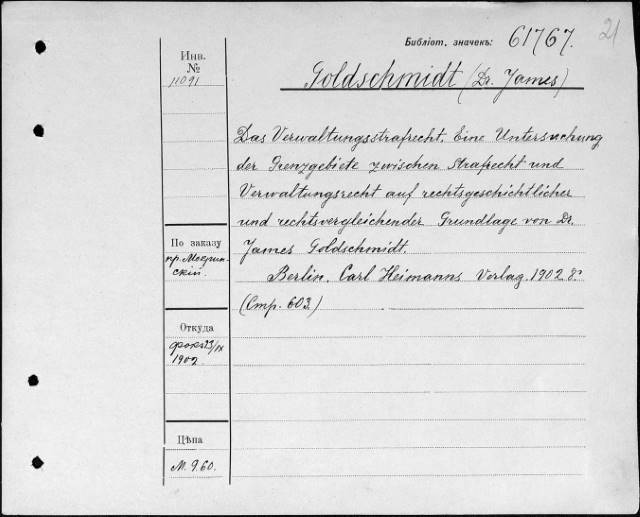 21
Библіот. значекъ: 61767.
Инв.
№
11091
Goldschmidt (Dr. James)
Das Verwaltungsstrafrecht. Eine Untersuchung
der Grenzgebiete zwischen Strafrecht und
Verwaltungsrecht auf rechtsgeschichtlicher
und rechtsvergleichender Grundlage von Dr.
James Goldschmidt.
Berlin. Carl Heimanns Verlag. 1902. 8º
(Стр. 603.)
По заказу
пр.
скій.
Откуда
23/IX
1902
Цѣна
М. 9.60.